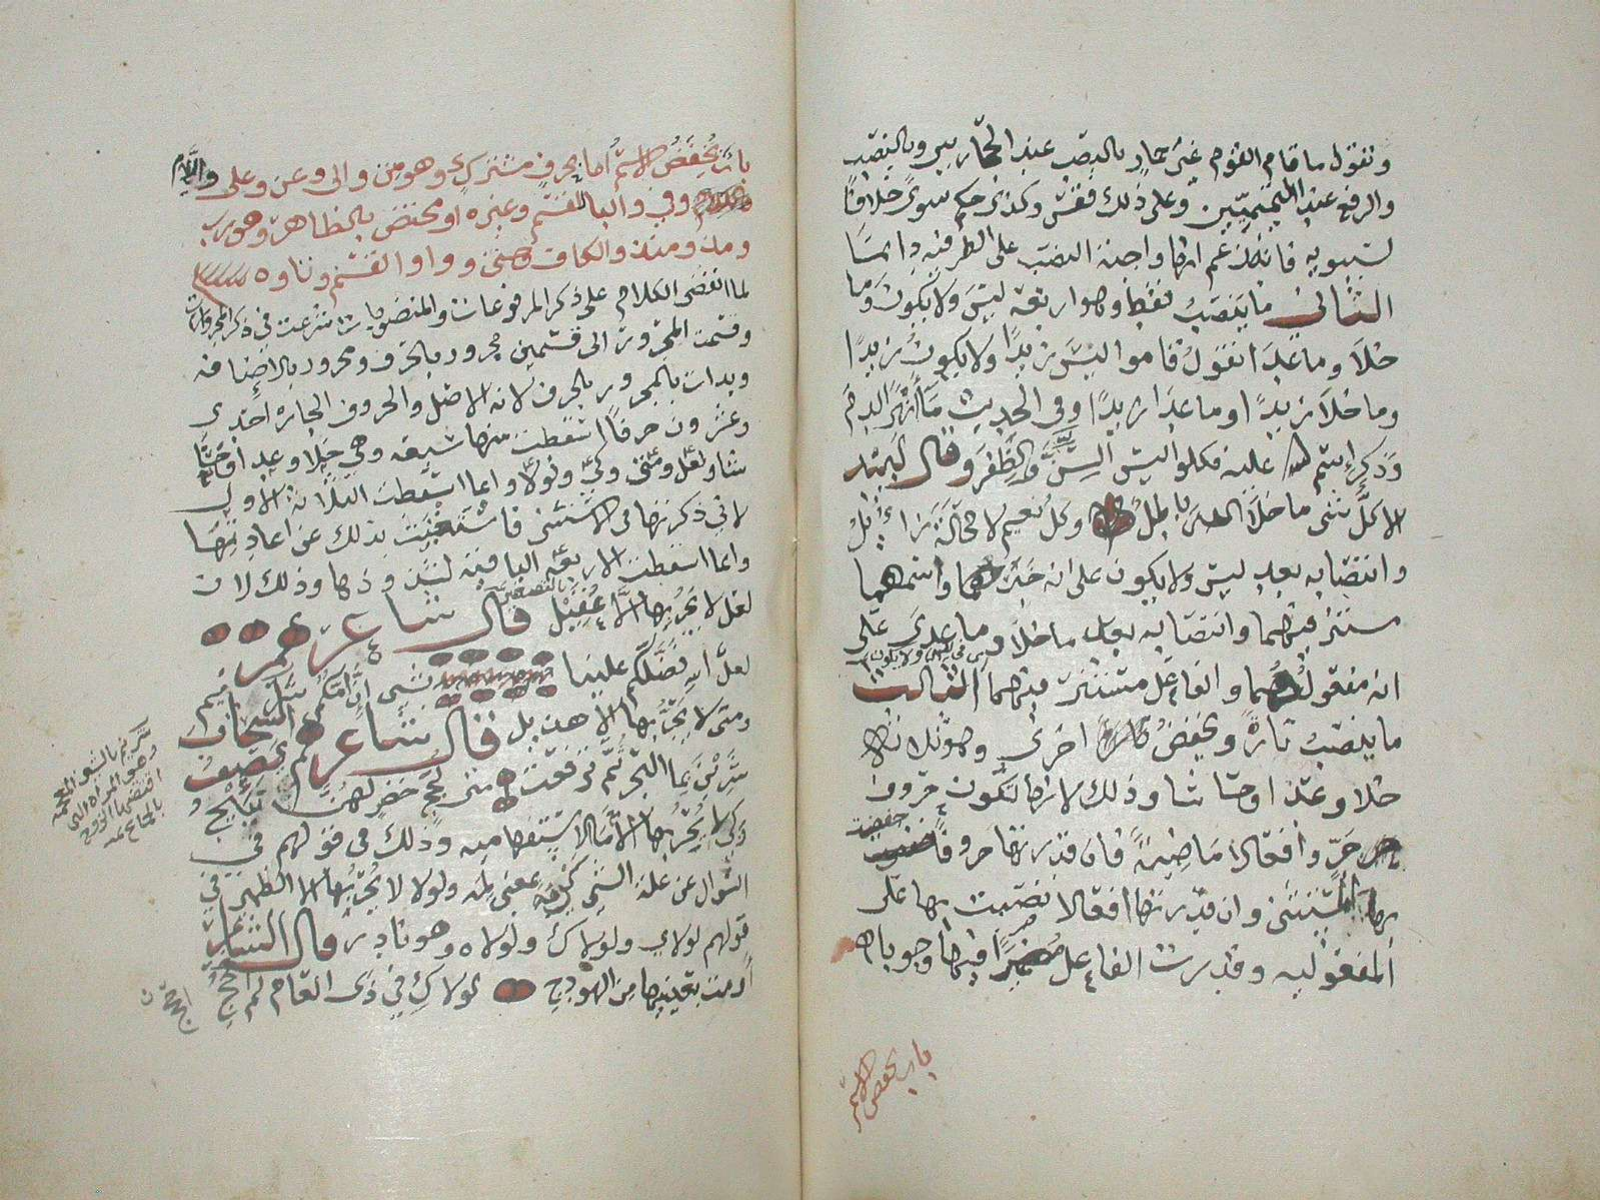 وتقول ما قام القوم غير حمار بالنصب عند الحجازيين وبالنصب
والرفع عند التميميين وعلى ذلك فقس وكذى حكم سوى خلافا
لسيبويه فانه زعم انها واجبة النصب على الظرفية دايما
الثاني ما ينصب فقط وهو اربعة ليس ولا يكون وما
خلا وما عدا تقول قاموا ليس زيدا ولا يكون زيدا
وما خلا زيدا او ما عدا زيدا وفي الحديث ما انهر الدم
وذكر اسم الله عليه فكلوا ليس السن والظفر وقال لبيد
الا كل شي ما خلا الله باطل وكل نعيم لا محالة زايل
وانتصابه بعد ليس ولا يكون على انه خبرهما واسمهما
مستتر فيهما وانتصابه بعد ما خلا وما عدى على
انه مفعولهما والفاعل مستتر فيهما الثالث
ما ينصب تارة ويخفض اخرى وهو ثلاثة
خلا وعدا وحاشا وذلك لانها تكون حروف
جر وافعالا ماضية فان قدرتها حروفا خفضت
بها المستثنى وان قدرتها افعالا نصبت بها على
المفعوليه وقدرت الفاعل مضمرا فيها وجوبا
باب يخفض الاسم
باب يخفض الاسم اما بحرف مشترك وهو من والى وعن وعلى واللام
وفي والبا للقسم وغيره او مختص بالظاهر وهو رب
ومذ ومنذ والكاف وحتى وواو القسم وتاوه
لما انقضى الكلام على ذكر المرفوعات والمنصوبات شرعت في ذكر المجرورات
وقسمت المجرورات الى قسمين مجرور بالحرف ومجرور بالاضافه
وبدات بالمجرور بالحرف لانه الاصل والحروف الجاره احدى
وعشرون حرفا اسقطت منها سبعه وهي خلا وعدا وحا
شا ولعل ومتى وكي ولولا وانما اسقطت الثلاثة الاول
لاني ذكرتها في الاستثنى فاستغنيت بذلك عن اعادتها
وانما اسقطت الاربعه الباقيه لشذوذها وذلك لان
لعل لا يجر بها الا عقيل قال شاعرهم
لعل الله فضلكم علينا بشي ان امكم شريم
ومتى لا يجر بها الا هذيل قال شاعرهم يصف السحاب
شربن بما البحر ثم ترفعت متى لجج خضر لهن نئيج
وكي لا يجر بها الا ما الاستفهاميه وذلك في قولهم في
السوال عن علة الشي كيمه بمعنى لمه ولولا لا يجر بها الا الضمير في
قولهم لولاي ولولاك ولولاه وهو نادر قال الشاعر
اومت بعينيها من الهودج لولاك في ذى العام لم احجج